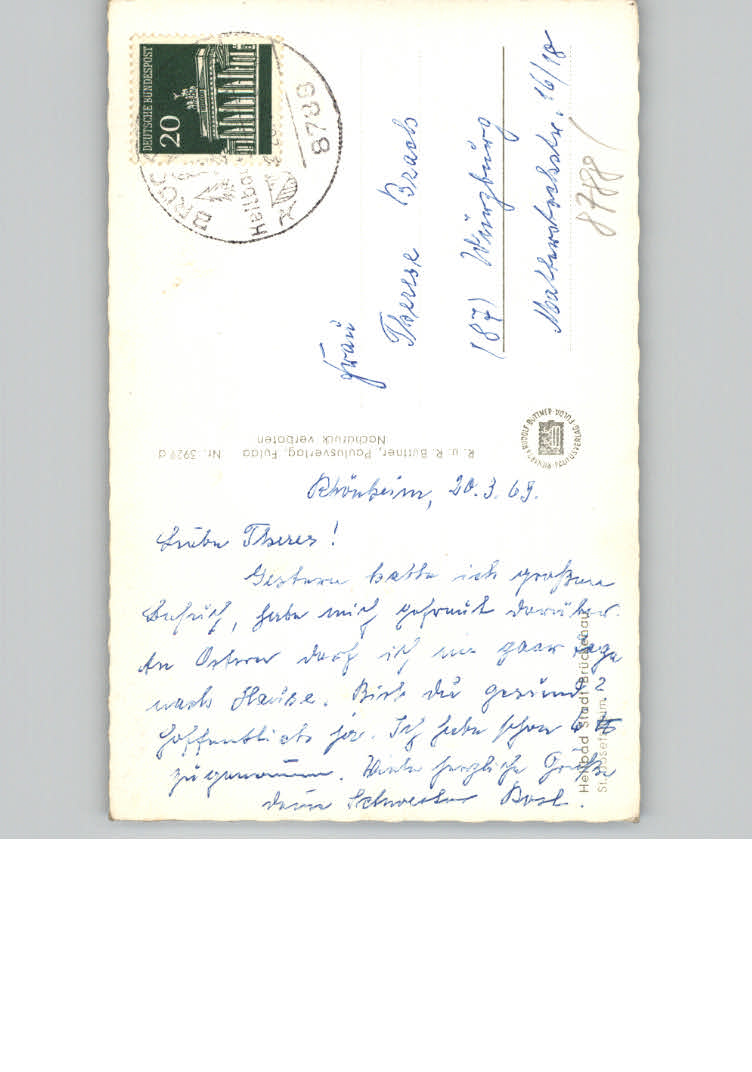 DEUTSCHE BUNDESPOST
20
BRÜCK
Heilba
8788
Frau
Therese Brach
(87) Würzburg
16/18
8788
R. u. R. Büttner, Paulusverlag, Fulda Nr. 3929 d
Nachdruck verboten
RUDOLF BÜTTNER · FULDA
PAULUSVERLAG
Rhönheim, 20.3.69.
Liebe Theres!
Gestern hatte ich großen
Besuch, habe mich gefreut darüber.
An Ostern darf ich ein paar Tage
nach Hause. Bist du gesund?
Hoffentlich ja. Ich habe schon 4 ℔
zugenommen. Viele herzliche Grüße
deine Schwester
Heilbad Stadt Brückenau
St. Josefsheim